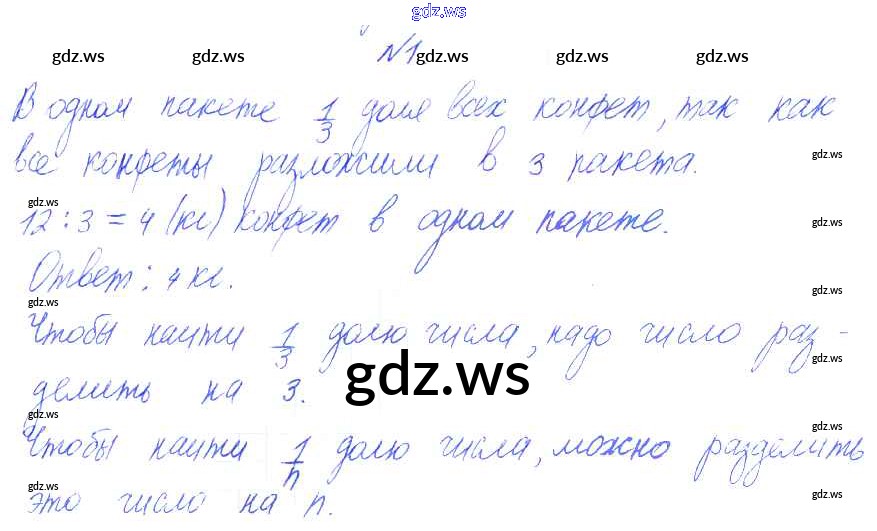 gdz.ws
№1
gdz.ws gdz.ws gdz.ws gdz.ws gdz.ws
В одном пакете 1/3 доля всех конфет, так как
все конфеты разложили в 3 пакета.
gdz.ws
gdz.ws
12 : 3 = 4 (кг) конфет в одном пакете.
gdz.ws
Ответ: 4 кг.
gdz.ws
gdz.ws
Чтобы найти 1/3 долю числа, надо число раз-
gdz.ws
делить на 3.
gdz.ws
gdz.ws
gdz.ws
Чтобы найти 1/n долю числа, можно разделить
gdz.ws
gdz.ws
это число на n.